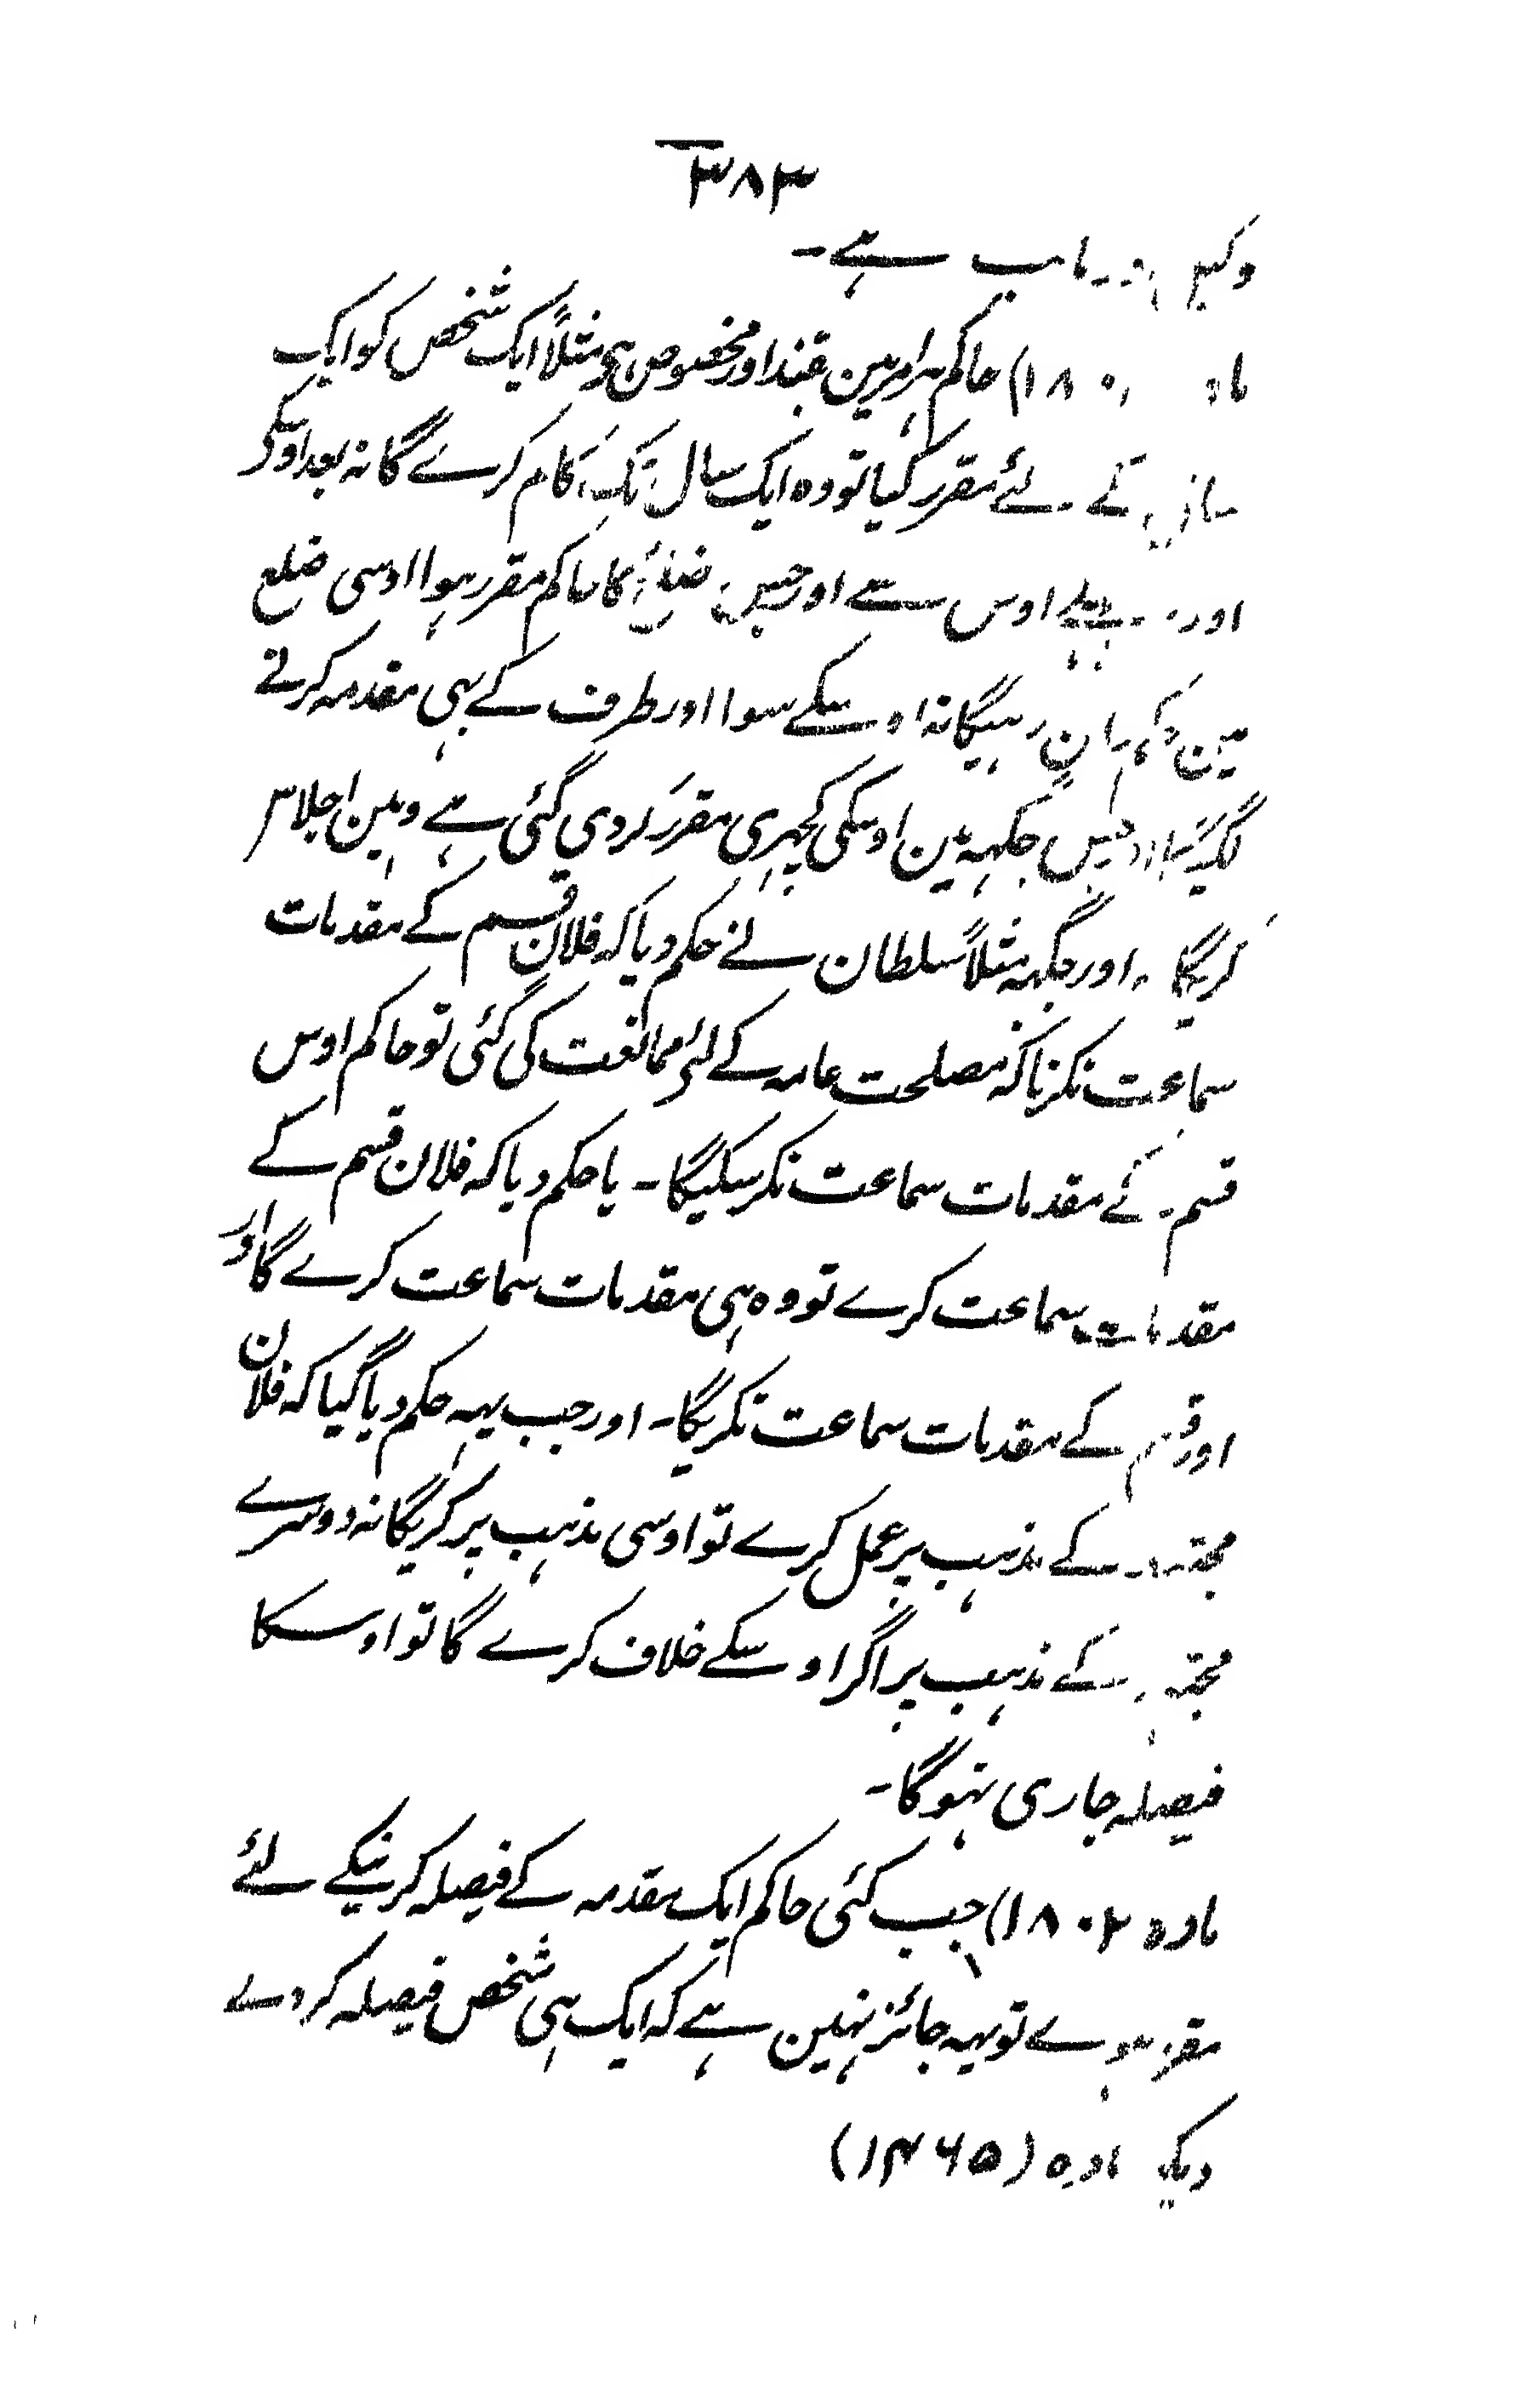 ۳۸۳
وکیل اور نایب ہے۔
مادہ ۱۸۰۱) حاکم ہر امر مین مقید اور مخصوص ہی مثلاً ایک شخص کو ایک
سال کے لئے مقرر کیا تو وہ ایک سال تک کام کرے گا نہ بعد اوسکی
اور نہ پہلے اوس سے اور جس ضلع کا حاکم مقرر ہوا اوسی ضلع
مین حکمران رہیگا نہ اوسکے سوا اور طرف کے بہی مقدمہ کرنے
لگیگا اور جس جگہہ مین اوسکی کچہری مقرر کردی گئی ہے وہین اجلاس
کریگا نہ اور جگہہ مثلاً سلطان نے حکم دیا کہ فلان قسم کے مقدمات
سماعت نکرنا کہ مصلحت عامہ کے لئے ممانعت کی گئی تو حاکم اوس
قسم کے مقدمات سماعت نکر سکیگا۔ یا حکم دیا کہ فلان قسم کے
مقدمات سماعت کرے تو وہ ہی مقدمات سماعت کرے گا اور
اور قسم کے مقدمات سماعت نکریگا۔ اور جب یہہ حکم دیا گیا کہ فلان
مجتہد کے مذہب پر عمل کرے تو اوسی مذہب پر کریگا نہ دوسرے
مجتہد کے مذہب پر اگر اوسکے خلاف کرے گا تو اوسکا
فیصلہ جاری نہوگا۔
مادہ ۱۸۰۲) جب کئی حاکم ایک مقدمہ کے فیصلہ کرنیکے لئے
مقرر ہوے تو یہہ جائز نہین ہے کہ ایک ہی شخص فیصلہ کردے
دیکہو مادہ (۱۴۶۵)